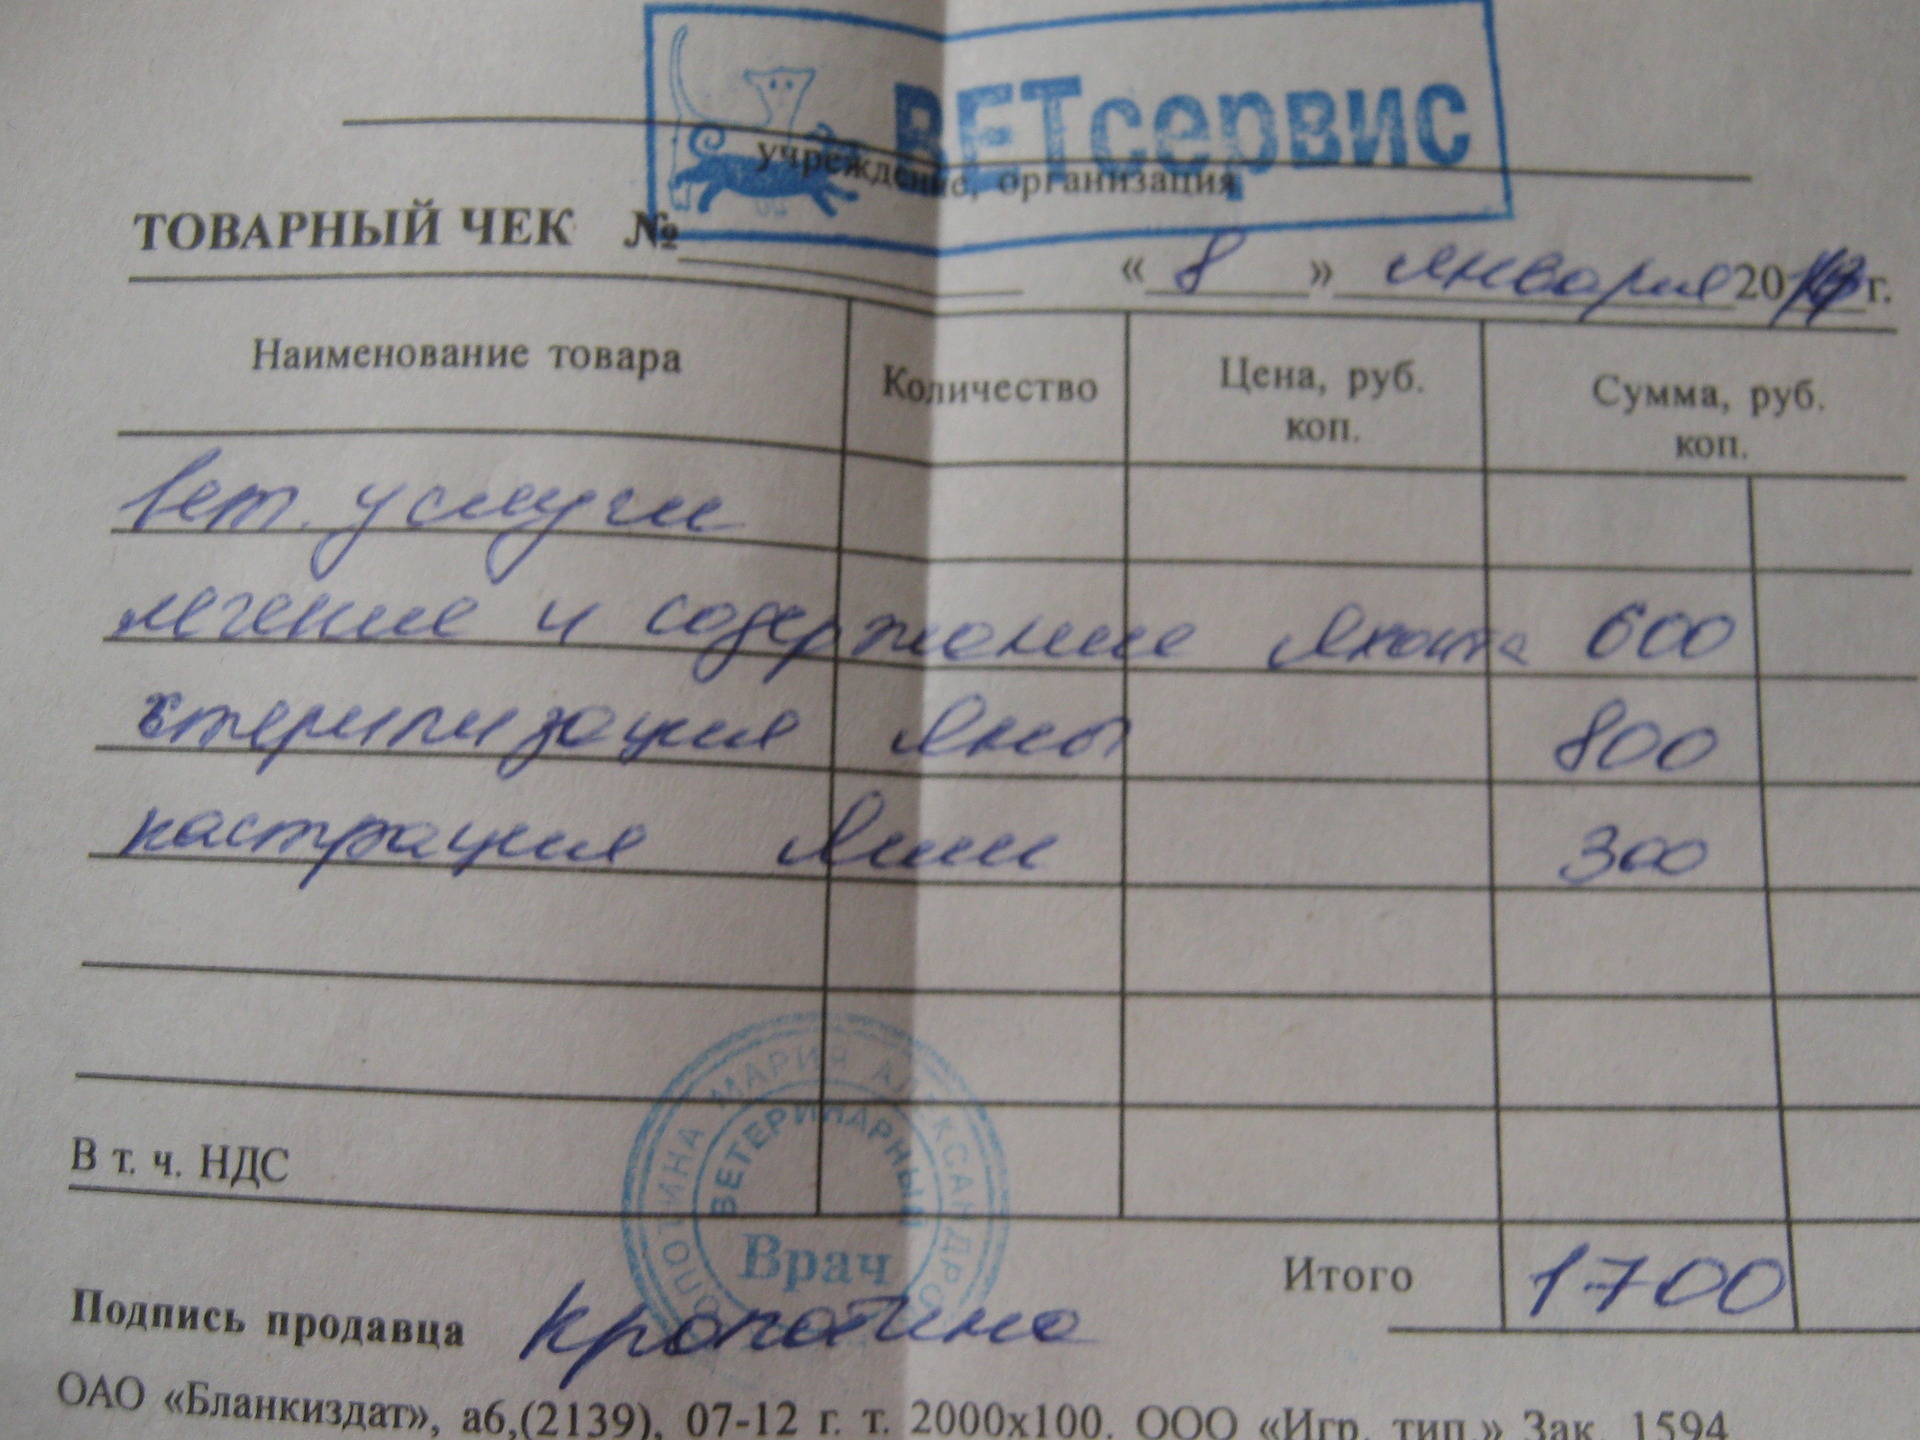 ВЕТсервис
учреждение, организация
ТОВАРНЫЙ ЧЕК №
« 8 » января 2013 г.
Наименование товара Количество Цена, руб. коп. Сумма, руб. коп.
вет. услуги
лечение и содержание 600
стерилизация Яны 800
кастрация Яши 300
МАРИЯ АЛЕКСАНДРО
ВЕТЕРИНАРНЫЙ
Врач
В т. ч. НДС
Итого 1700
Подпись продавца Кропотина
ОАО «Бланкиздат», а6,(2139), 07-12 г. т. 2000х100. ООО «Игр. тип.» Зак. 1594